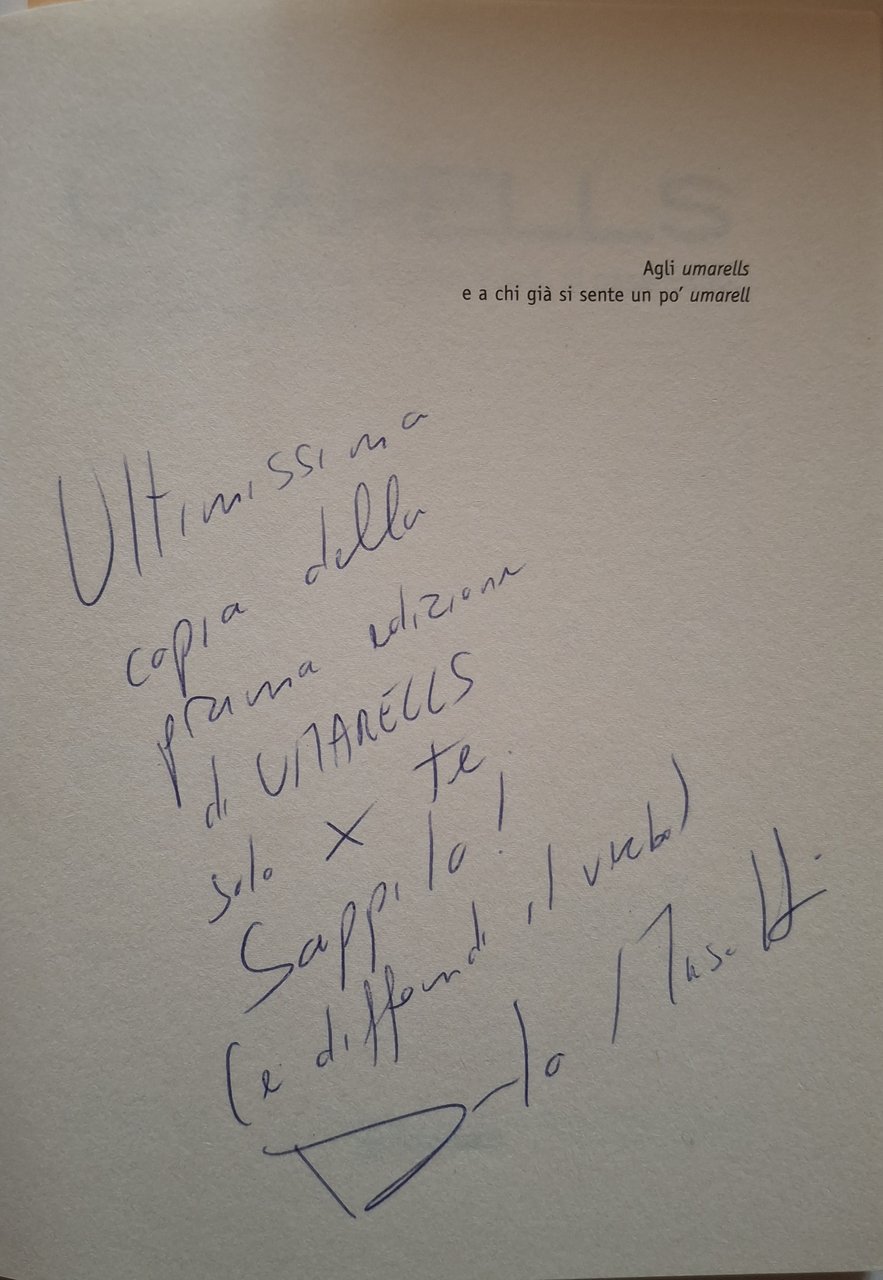 UMARELLS
Agli umarells
e a chi già si sente un po’ umarell
Ultimissima
copia della
prima edizione
di UMARELLS
solo X te.
Sappilo!
(e diffondi il verbo)
Danilo Masotti